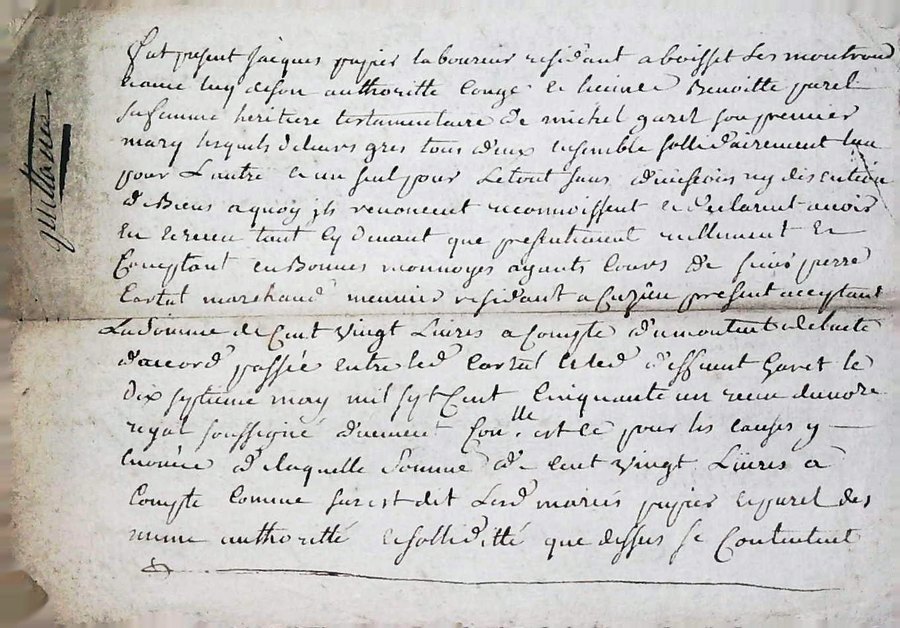 quittance
Fut present Jacques papier laboureur residant a boisset Les montrond
et avec luy de son authoritté congé et licence Benoitte parel
sa femme heritiere testamentaire de michel garel son premier
mary lesquels de leurs gres tous deux ensemble sollidairement l'un
pour L'autre et un seul pour Le tout sans division ny discution
de Biens a quoy ils renoncent reconnoissent et declarent avoir
eu et receu tant cy devant que presentement reellement et
Comptant en Bonnes monnoyes ayants cours de sieur pierre
Cartal marchand meunier residant a Cuzieu present acceptant
La Somme de Cent Vingt Livres a Compte du montent de lacte
d'accord passée entre led Cartal et led deffunt Garel le
Dix septieme may mil sept Cent Cinquante un receu du nore
royal soussigné duement Con.lle et ce pour les causes y
Enoncé de laquelle Somme de Cent Vingt Livres a
Compte Comme sus est dit Lesd mariés papier et parel des
meme authoritté et solliditté que dessus se Contentent